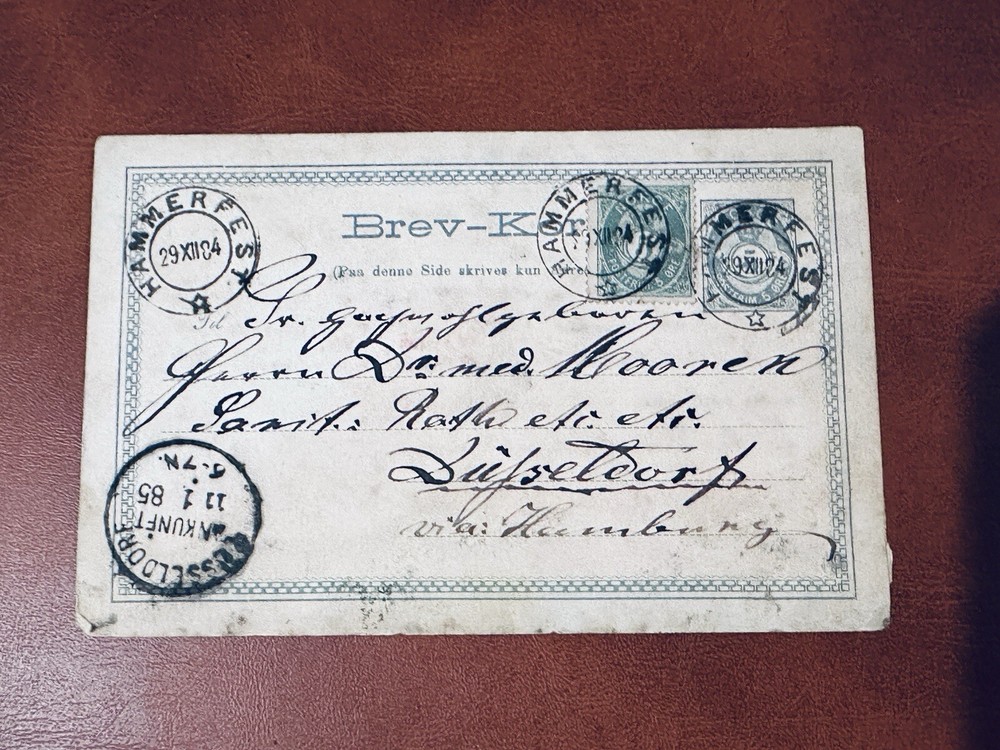 Brev-Ko
(Paa denne Side skrives kun
HAMMERFEST
29 XII 84
HAMMERFEST
XII 84
5 ØRE
HAMMERFEST
29 XII 84
5 ØRE
Til Sr. Hochwohlgeboren
Herrn Dr. med. Mooren
Sanit: Rath etc: etc:
Düsseldorf
via: Hamburg
DÜSSELDORF
ANKUNFT
11 1 85
6-7N.